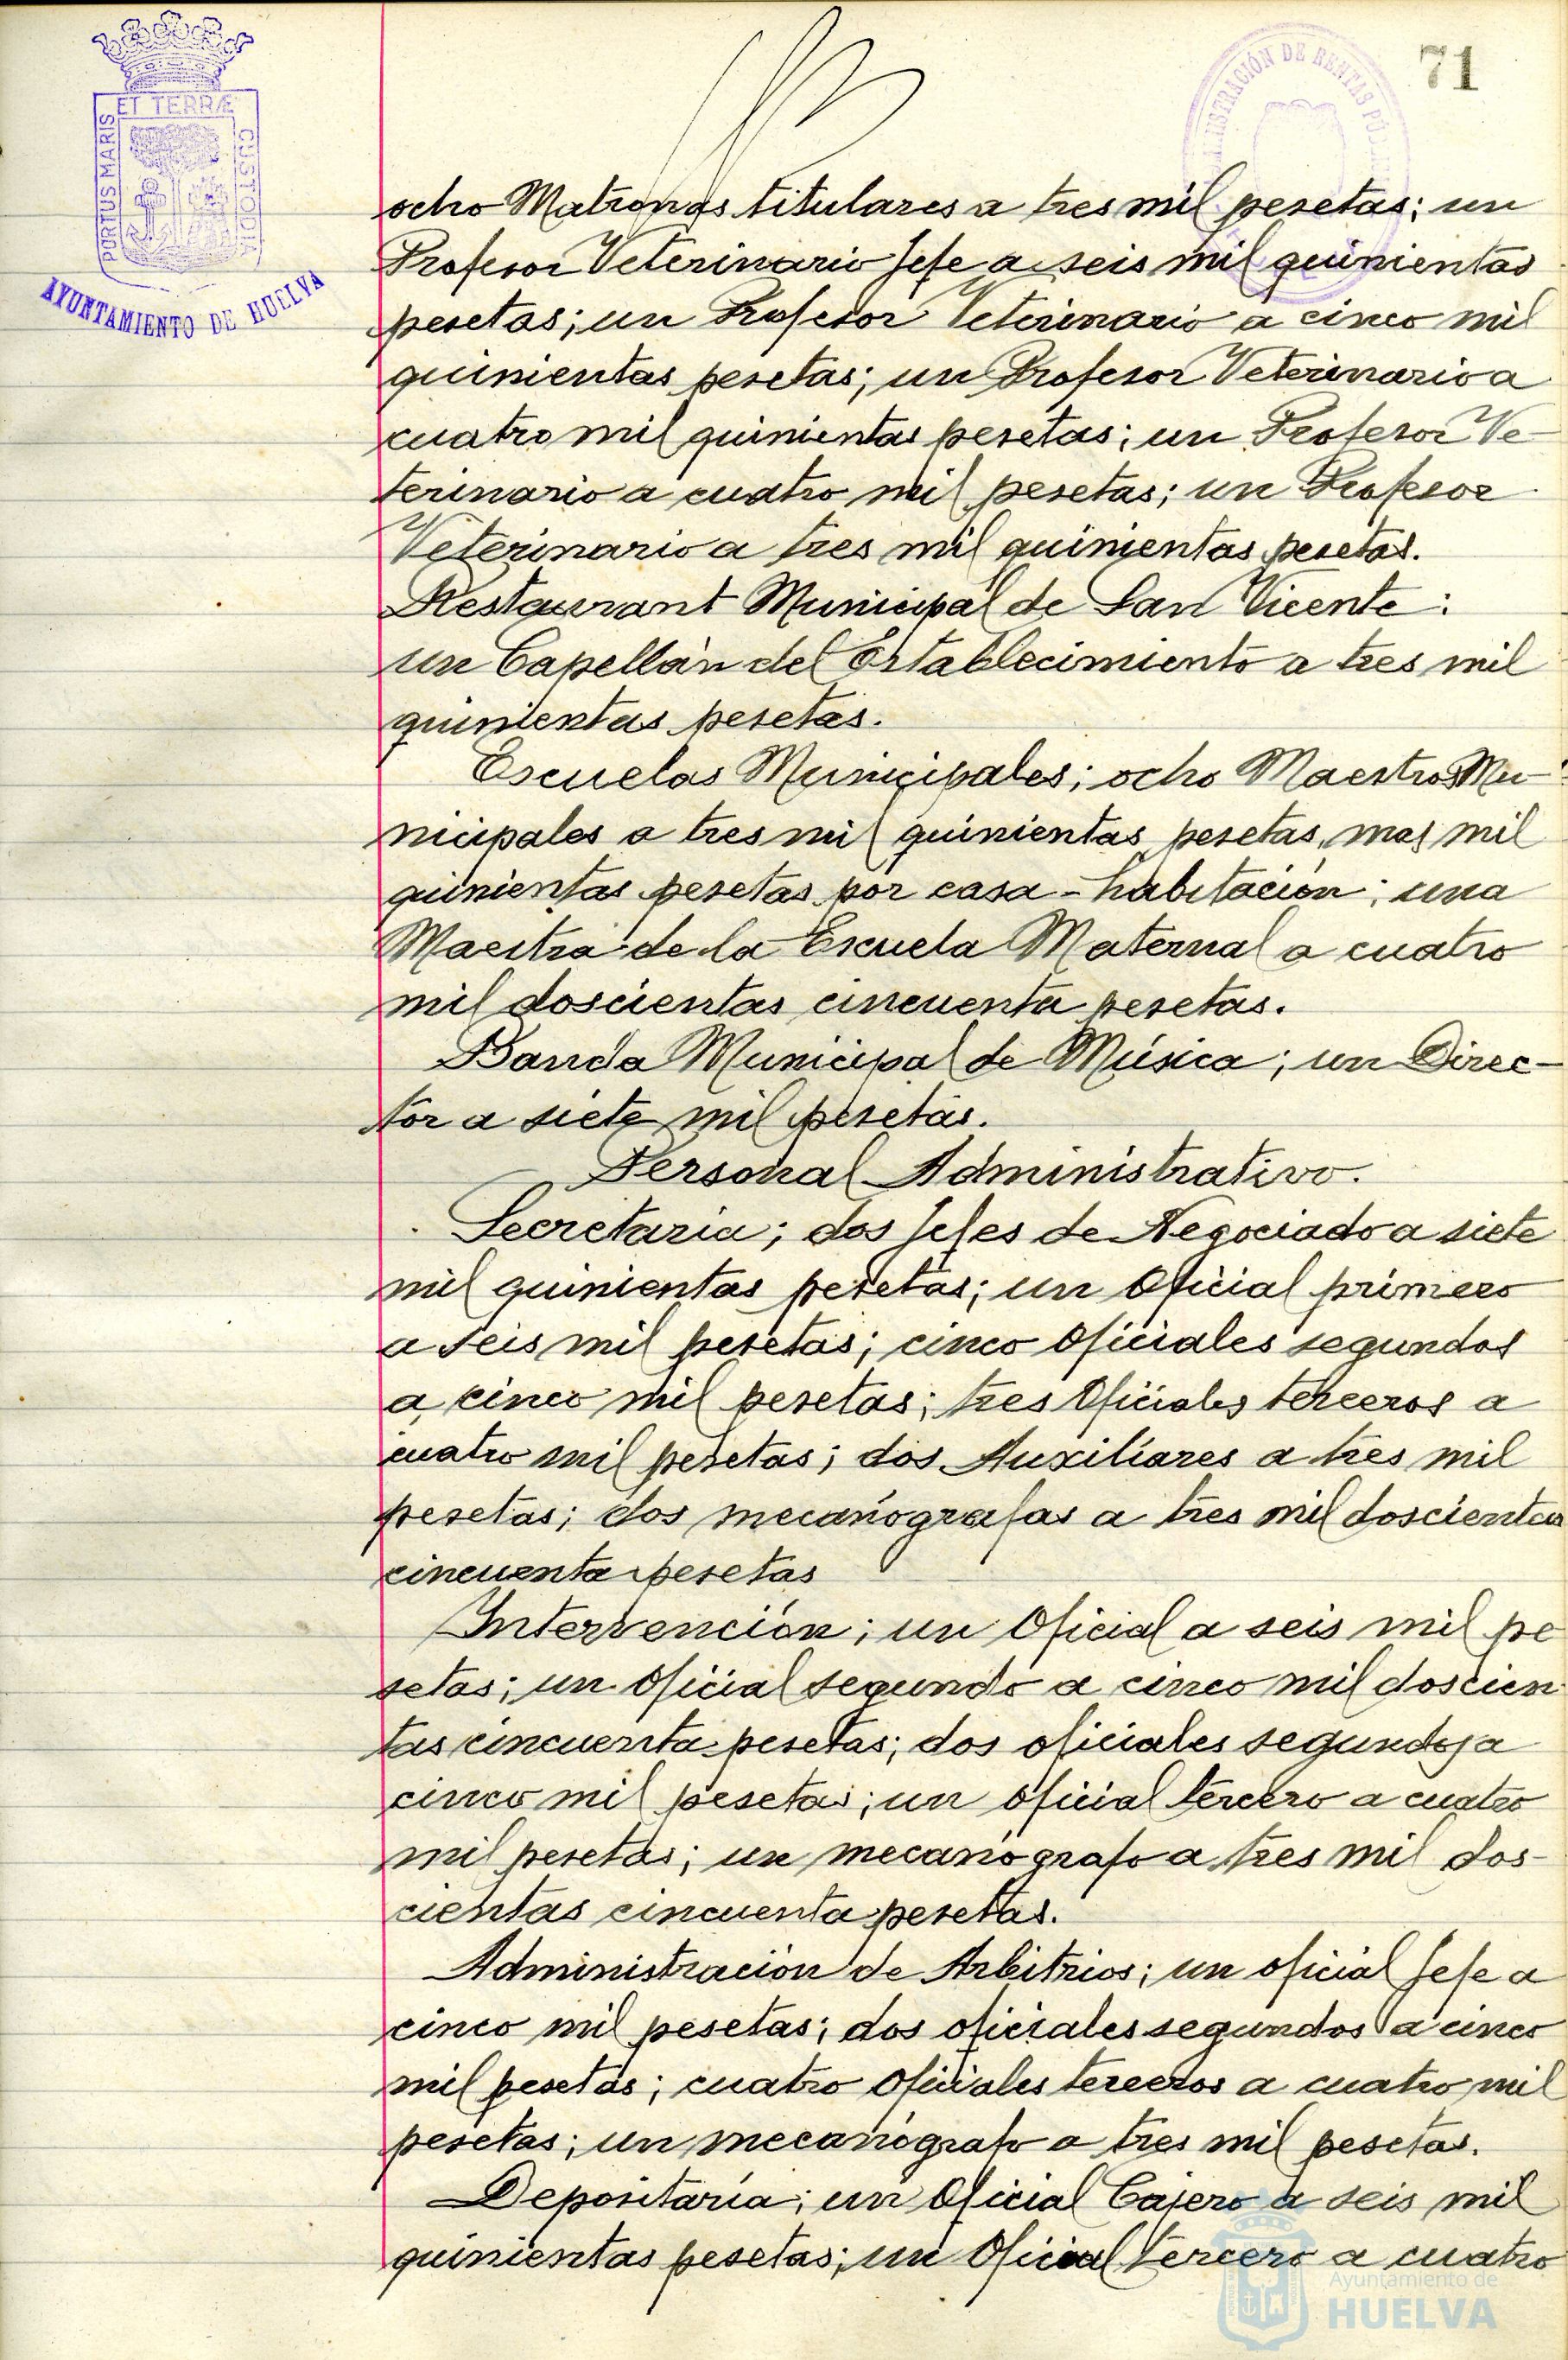 71
ET TERRÆ
PORTUS MARIS
CUSTODIA
AYUNTAMIENTO DE HUELVA
ADMINISTRACIÓN DE RENTAS PÚB
ocho Matronas titulares a tres mil pesetas; un
Profesor Veterinario Jefe a seis mil quinientas
pesetas; un Profesor Veterinario a cinco mil
quinientas pesetas; un Profesor Veterinario a
cuatro mil quinientas pesetas; un Profesor Ve-
terinario a cuatro mil pesetas; un Profesor
Veterinario a tres mil quinientas pesetas.
Restaurant Municipal de San Vicente:
un Capellán del Establecimiento a tres mil
quinientas pesetas.
Escuelas Municipales; ocho Maestros Mu-
nicipales a tres mil quinientas pesetas, mas mil
quinientas pesetas por casa-habitación; una
Maestra de la Escuela Maternal a cuatro
mil doscientas cincuenta pesetas.
Banda Municipal de Música; un Direc-
tor a siete mil pesetas.
Personal Administrativo.
Secretaria; dos Jefes de Negociado a siete
mil quinientas pesetas; un Oficial primero
a seis mil pesetas; cinco Oficiales segundos
a cinco mil pesetas; tres Oficiales terceros a
cuatro mil pesetas; dos Auxiliares a tres mil
pesetas; dos mecanógrafas a tres mil doscientas
cincuenta pesetas
Intervención; un Oficial a seis mil pe
setas; un Oficial segundo a cinco mil doscien
tas cincuenta pesetas; dos oficiales segundos a
cinco mil pesetas; un oficial tercero a cuatro
mil pesetas; un mecanógrafo a tres mil dos-
cientas cincuenta pesetas.
Administración de Arbitrios; un oficial Jefe a
cinco mil pesetas; dos oficiales segundos a cinco
mil pesetas; cuatro Oficiales terceros a cuatro mil
pesetas; un mecanógrafo a tres mil pesetas.
Depositaría; un Oficial Cajero a seis mil
quinientas pesetas; un Oficial tercero a cuatro
Ayuntamiento de
HUELVA